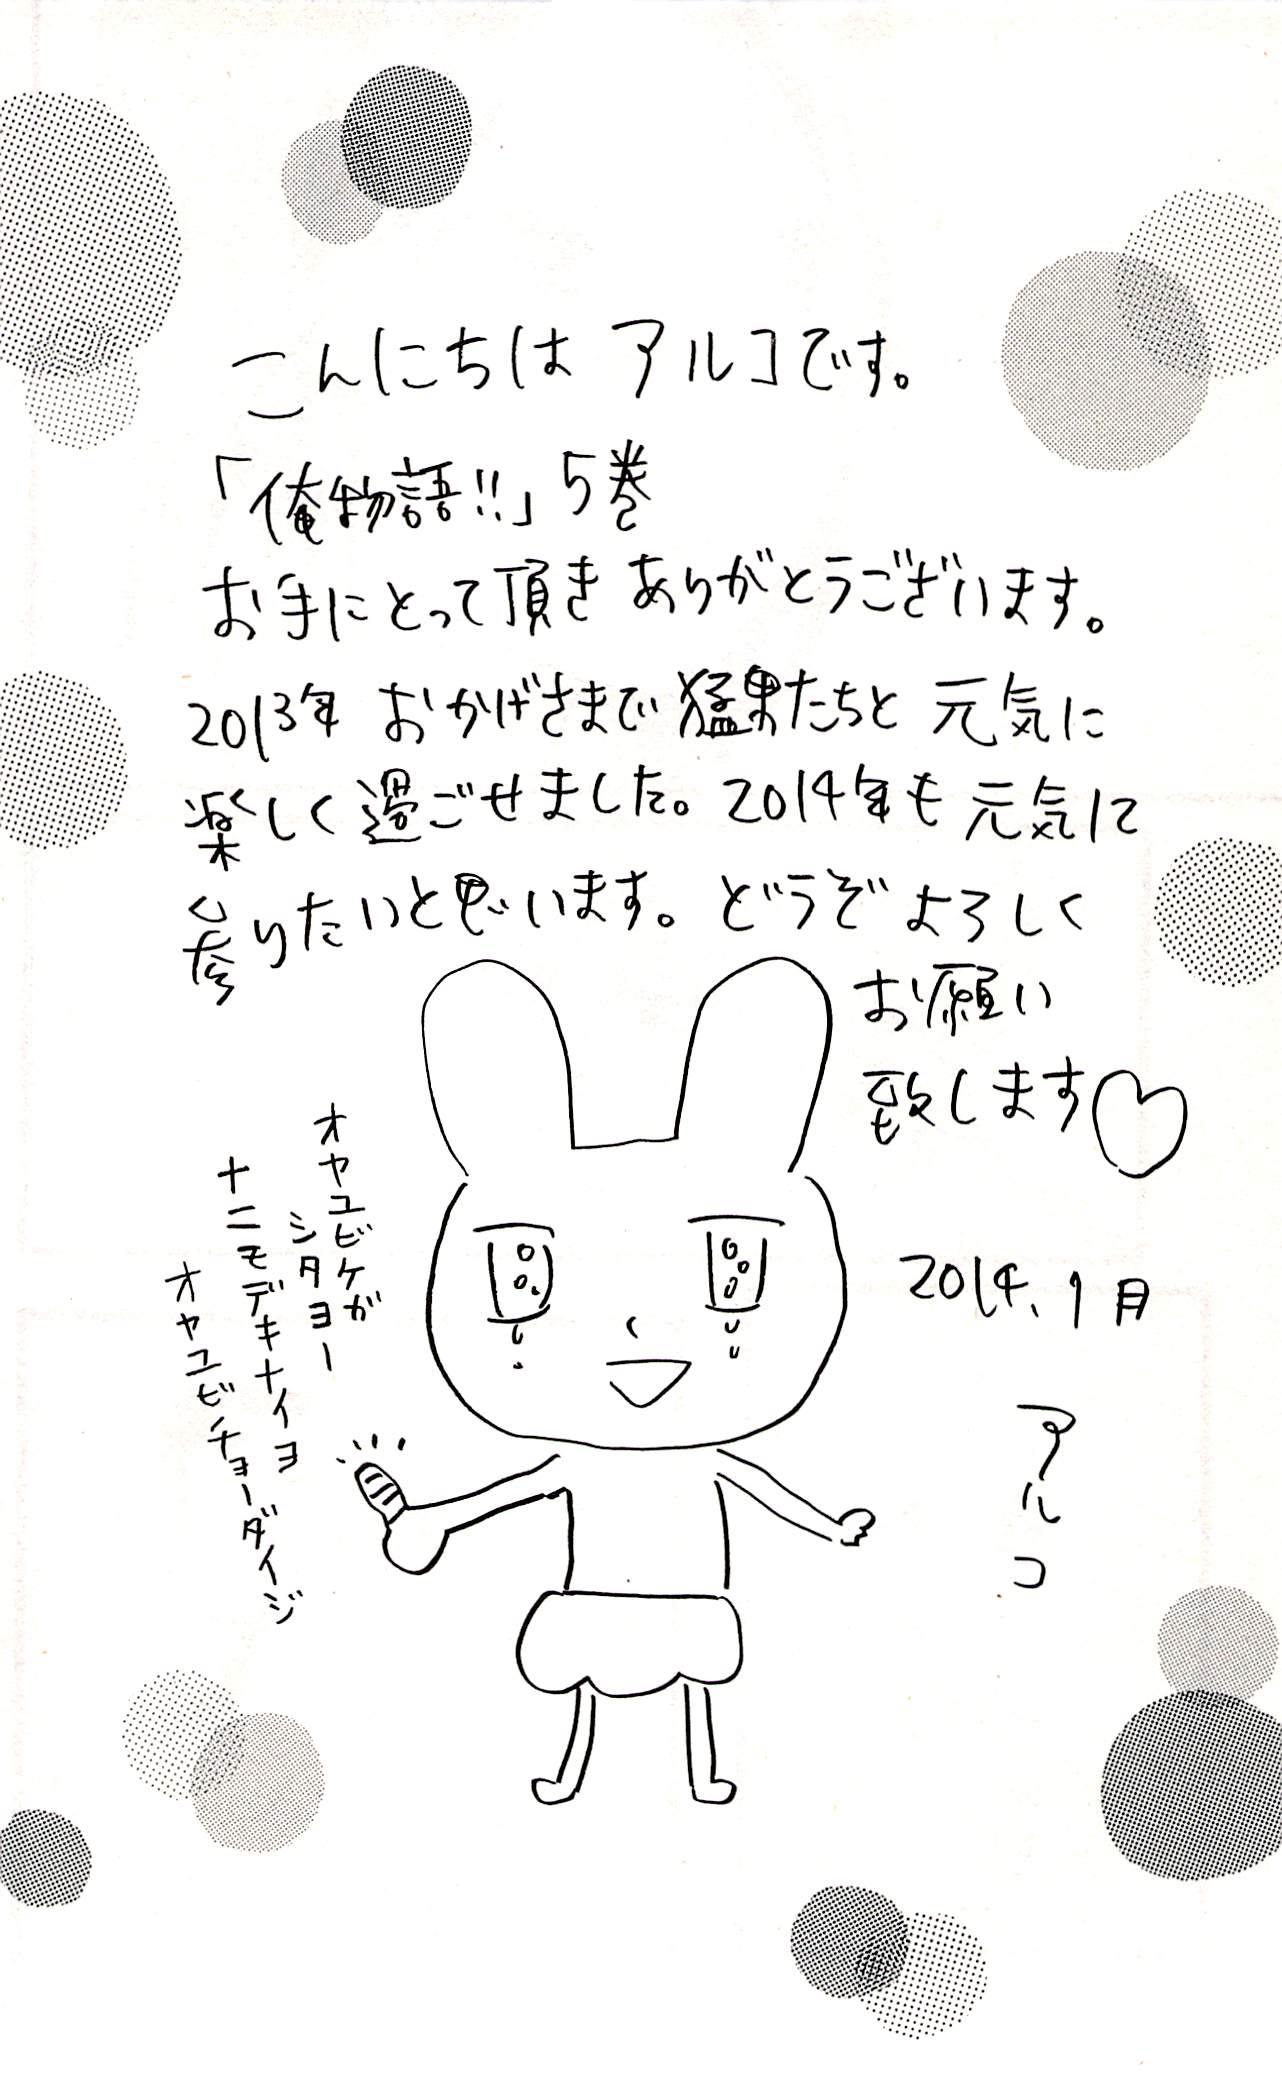 こんにちは アルコです。
「俺物語!!」5巻
お手にとって頂き ありがとうございます。
2013年 おかげさまで猛男たちと 元気に
楽しく過ごせました。2014年も 元気に
参りたいと思います。どうぞ よろしく
お願い
致します♡
2014.1月
アルコ
オヤユビケガ
シタヨー
ナニモデキナイヨ
オヤユビチョーダイジ